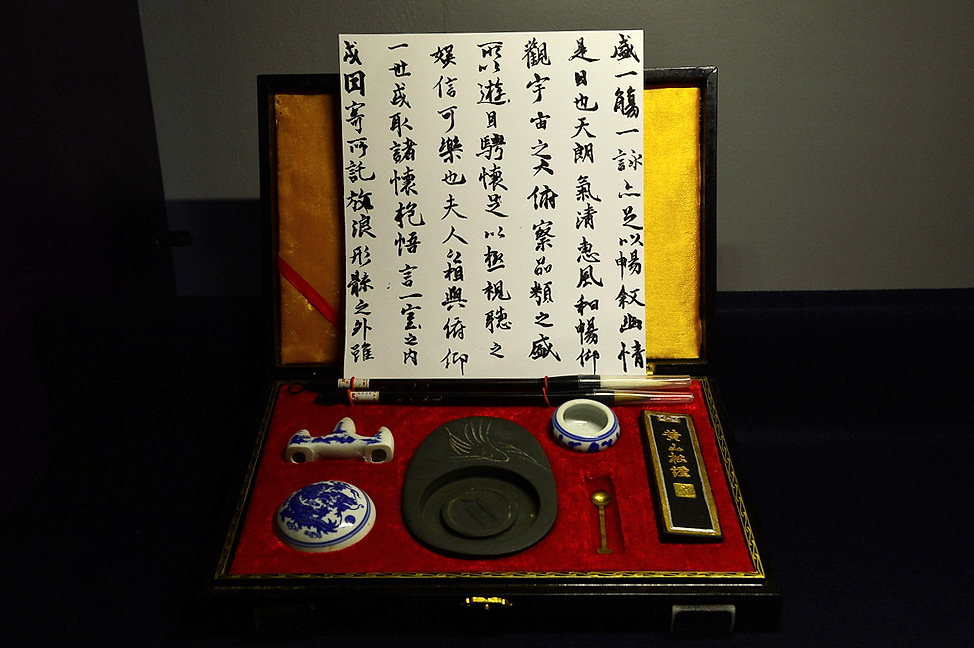 盛一觴一詠亦足以暢叙幽情
是日也天朗氣清惠風和暢仰
觀宇宙之大俯察品類之盛
所以遊目騁懷足以極視聽之
娛信可樂也夫人之相與俯仰
一世或取諸懷抱悟言一室之内
或因寄所託放浪形骸之外雖
黄山松煙